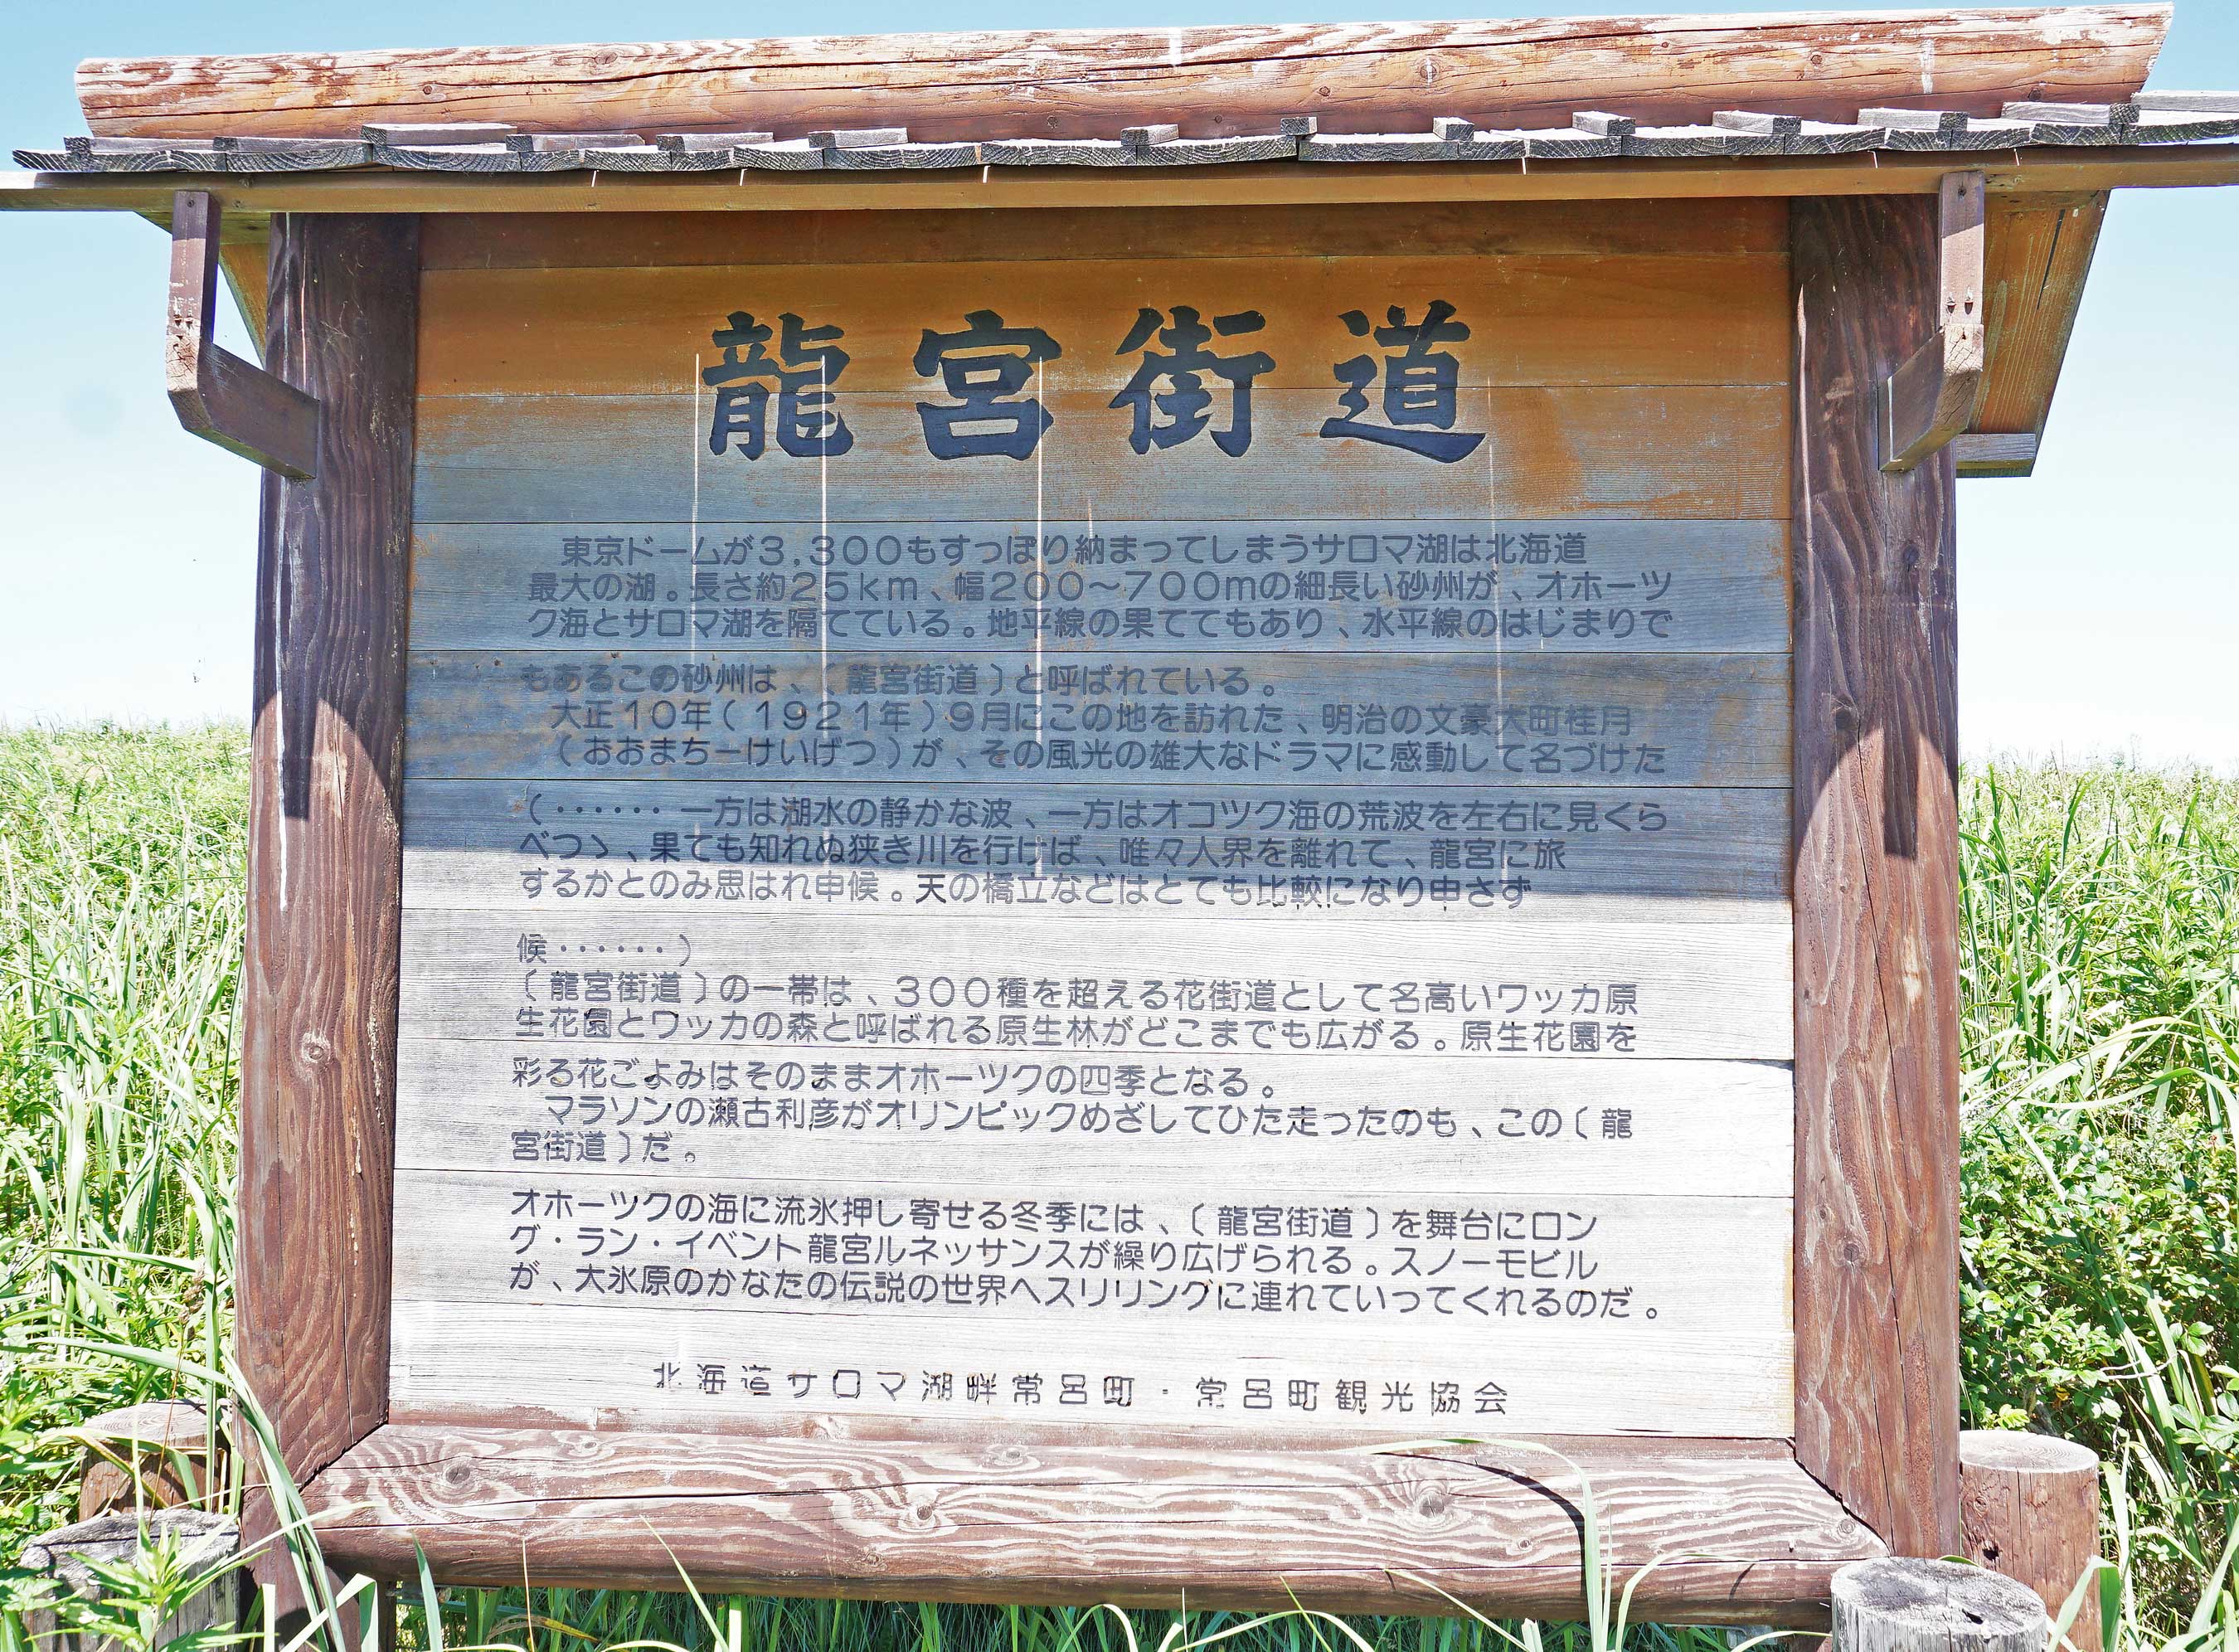 龍宮街道
東京ドームが3,300もすっぽり納まってしまうサロマ湖は北海道
最大の湖。長さ約25km、幅200〜700mの細長い砂州が、オホーツ
ク海とサロマ湖を隔てている。地平線の果ててもあり、水平線のはじまりで
もあるこの砂州は、〔龍宮街道〕と呼ばれている。
大正10年(1921年)9月にこの地を訪れた、明治の文豪大町桂月
(おおまちーけいげつ)が、その風光の雄大なドラマに感動して名づけた
(・・・・・・一方は湖水の静かな波、一方はオコツク海の荒波を左右に見くら
べつゝ、果ても知れぬ狭き川を行けば、唯々人界を離れて、龍宮に旅
するかとのみ思はれ申候。天の橋立などはとても比較になり申さず
候・・・・・・)
〔龍宮街道〕の一帯は、300種を超える花街道として名高いワッカ原
生花園とワッカの森と呼ばれる原生林がどこまでも広がる。原生花園を
彩る花ごよみはそのままオホーツクの四季となる。
マラソンの瀬古利彦がオリンピックめざしてひた走ったのも、この〔龍
宮街道〕だ。
オホーツクの海に流氷押し寄せる冬季には、〔龍宮街道〕を舞台にロン
グ・ラン・イベント龍宮ルネッサンスが繰り広げられる。スノーモビル
が、大氷原のかなたの伝説の世界へスリリングに連れていってくれるのだ。
北海道サロマ湖畔常呂町・常呂町観光協会